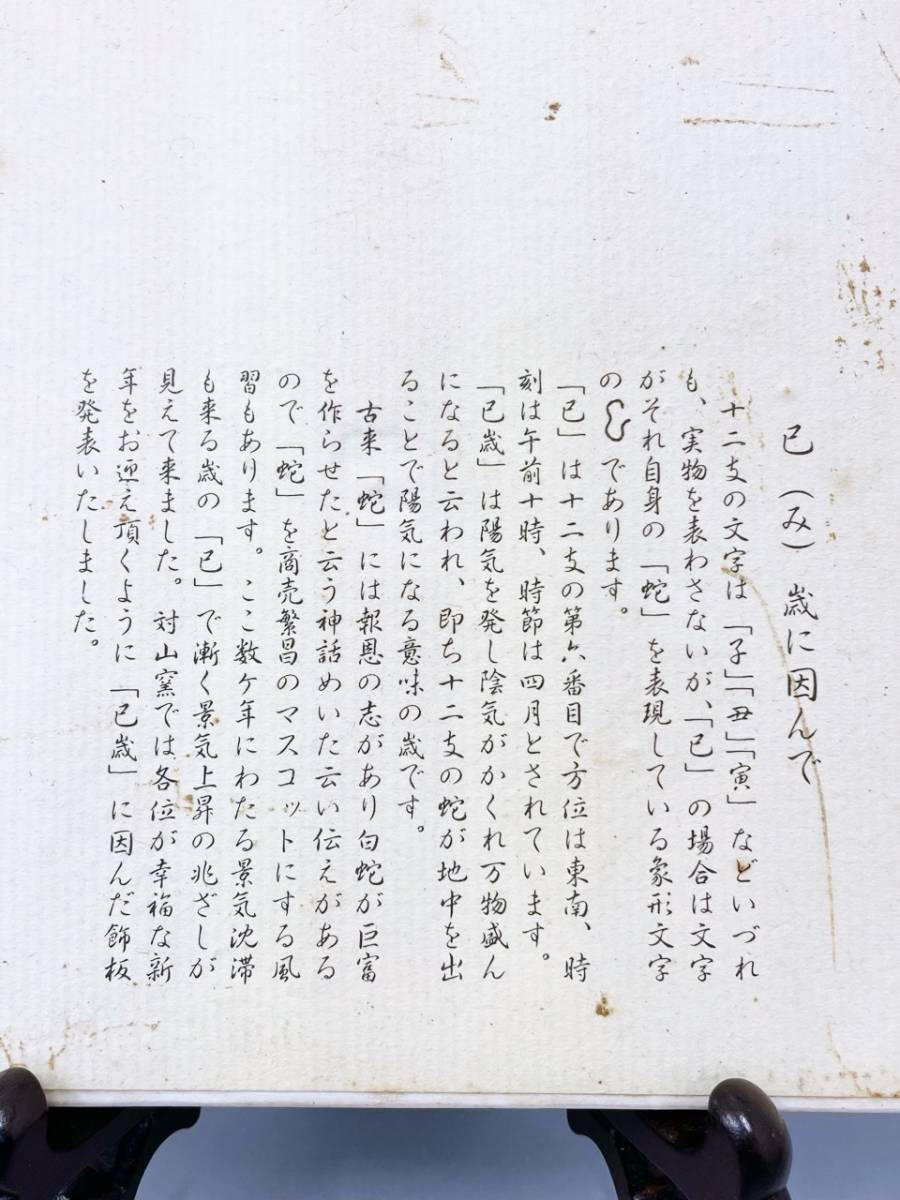 巳(み)歳に因んで
十二支の文字は「子」「丑」「寅」などいづれ
も、実物を表わさないが、「巳」の場合は文字
がそれ自身の「蛇」を表現している象形文字
のであります。
「巳」は十二支の第六番目で方位は東南、時
刻は午前十時、時節は四月とされています。
「巳歳」は陽気を発し陰気がかくれ万物盛ん
になると云われ、即ち十二支の蛇が地中を出
ることで陽気になる意味の歳です。
古来「蛇」には報恩の志があり白蛇が巨富
を作らせたと云う神話めいた云い伝えがある
ので「蛇」を商売繁昌のマスコットにする風
習もあります。ここ数ケ年にわたる景気沈滞
も来る歳の「巳」で漸く景気上昇の兆ざしが
見えて来ました。対山窯では各位が幸福な新
年をお迎え頂くように「巳歳」に因んだ飾板
を発表いたしました。